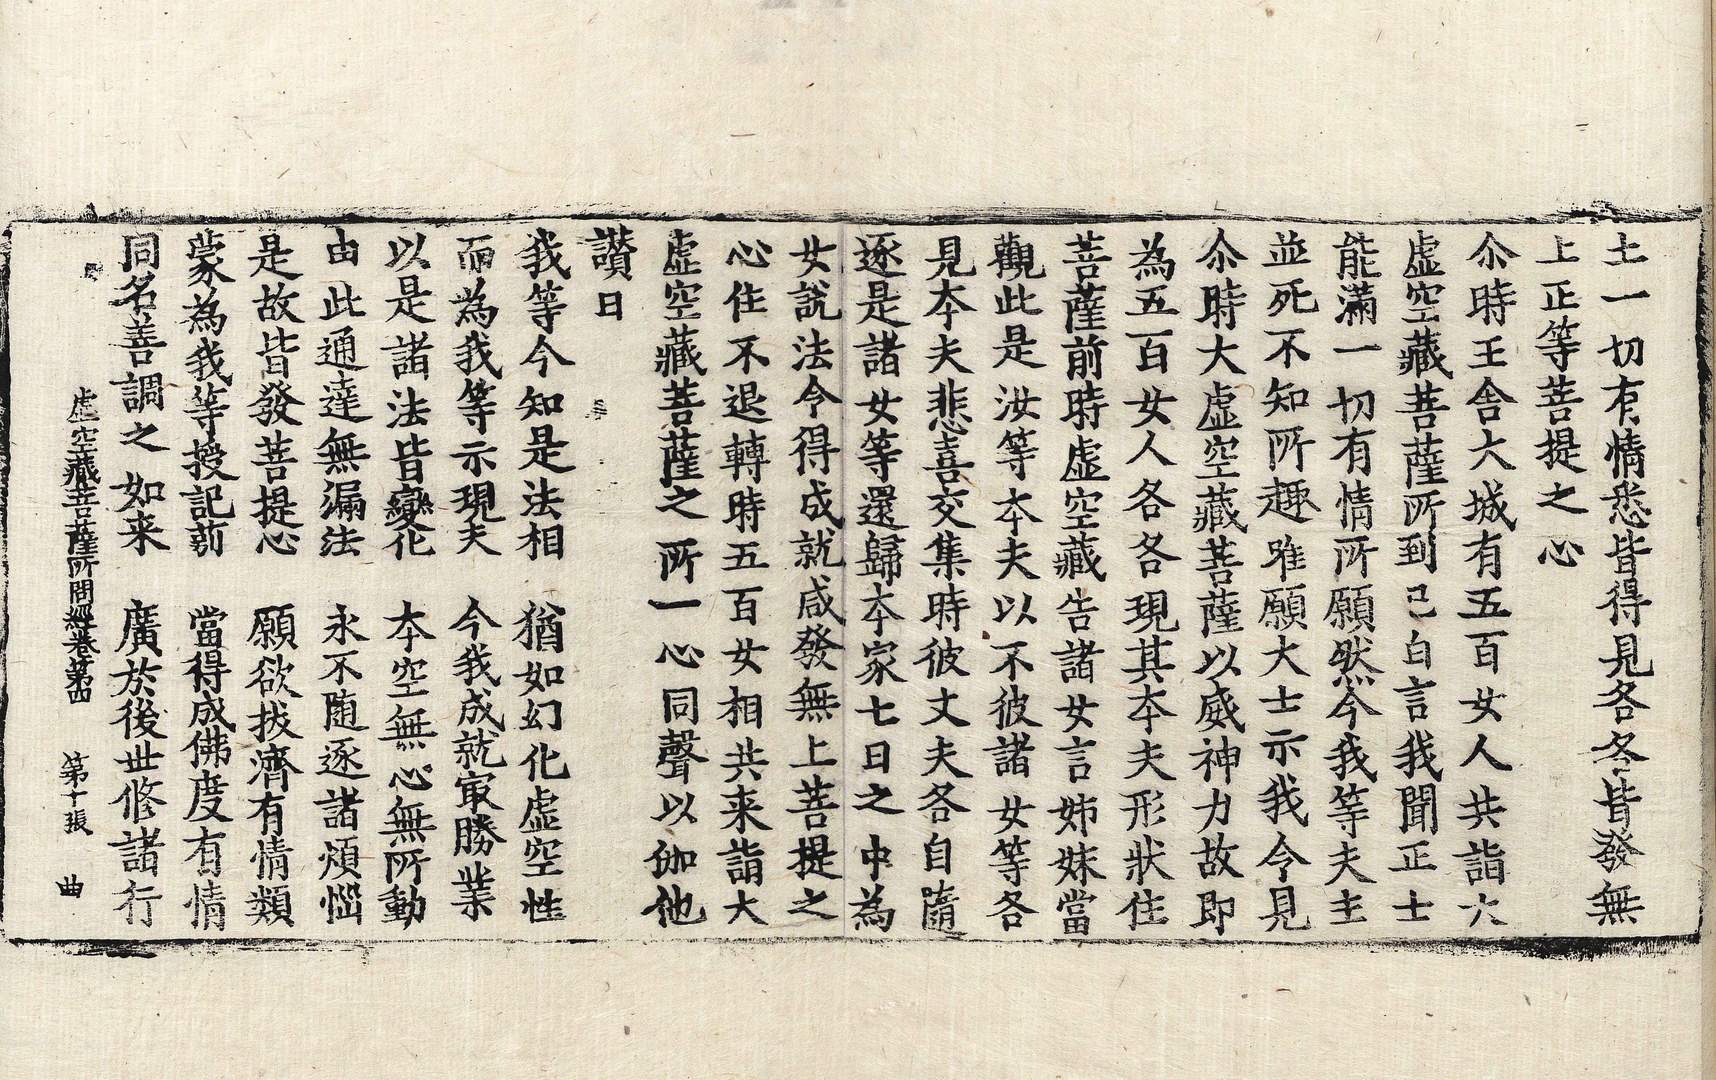 土一切有情悉皆得見各各皆發無
上正等菩提之心
尒時王舍大城有五百女人共詣大
虛空藏菩薩所到已白言我聞正士
能滿一切有情所願然今我等夫主
並死不知所趣唯願大士示我今見
尒時大虛空藏菩薩以威神力故即
為五百女人各各現其本夫形狀住
菩薩前時虛空藏告諸女言姊妹當
觀此是汝等本夫以不彼諸女等各
見本夫悲喜交集時彼丈夫各自隨
逐是諸女等還歸本家七日之中為
女說法令得成就咸發無上菩提之
心住不退轉時五百女相共来詣大
虛空藏菩薩之所一心同聲以伽他
讚曰
我等今知是法相　猶如幻化虛空性
而為我等示現夫　今我成就㝡勝業
以是諸法皆變化　本空無心無所動
由此通達無漏法　永不隨逐諸煩惱
是故皆發菩提心　願欲拔濟有情類
蒙為我等授記莂　當得成佛度有情
同名善調之如来　廣於後世修諸行
虛空藏菩薩所問經卷第四　第十張　曲